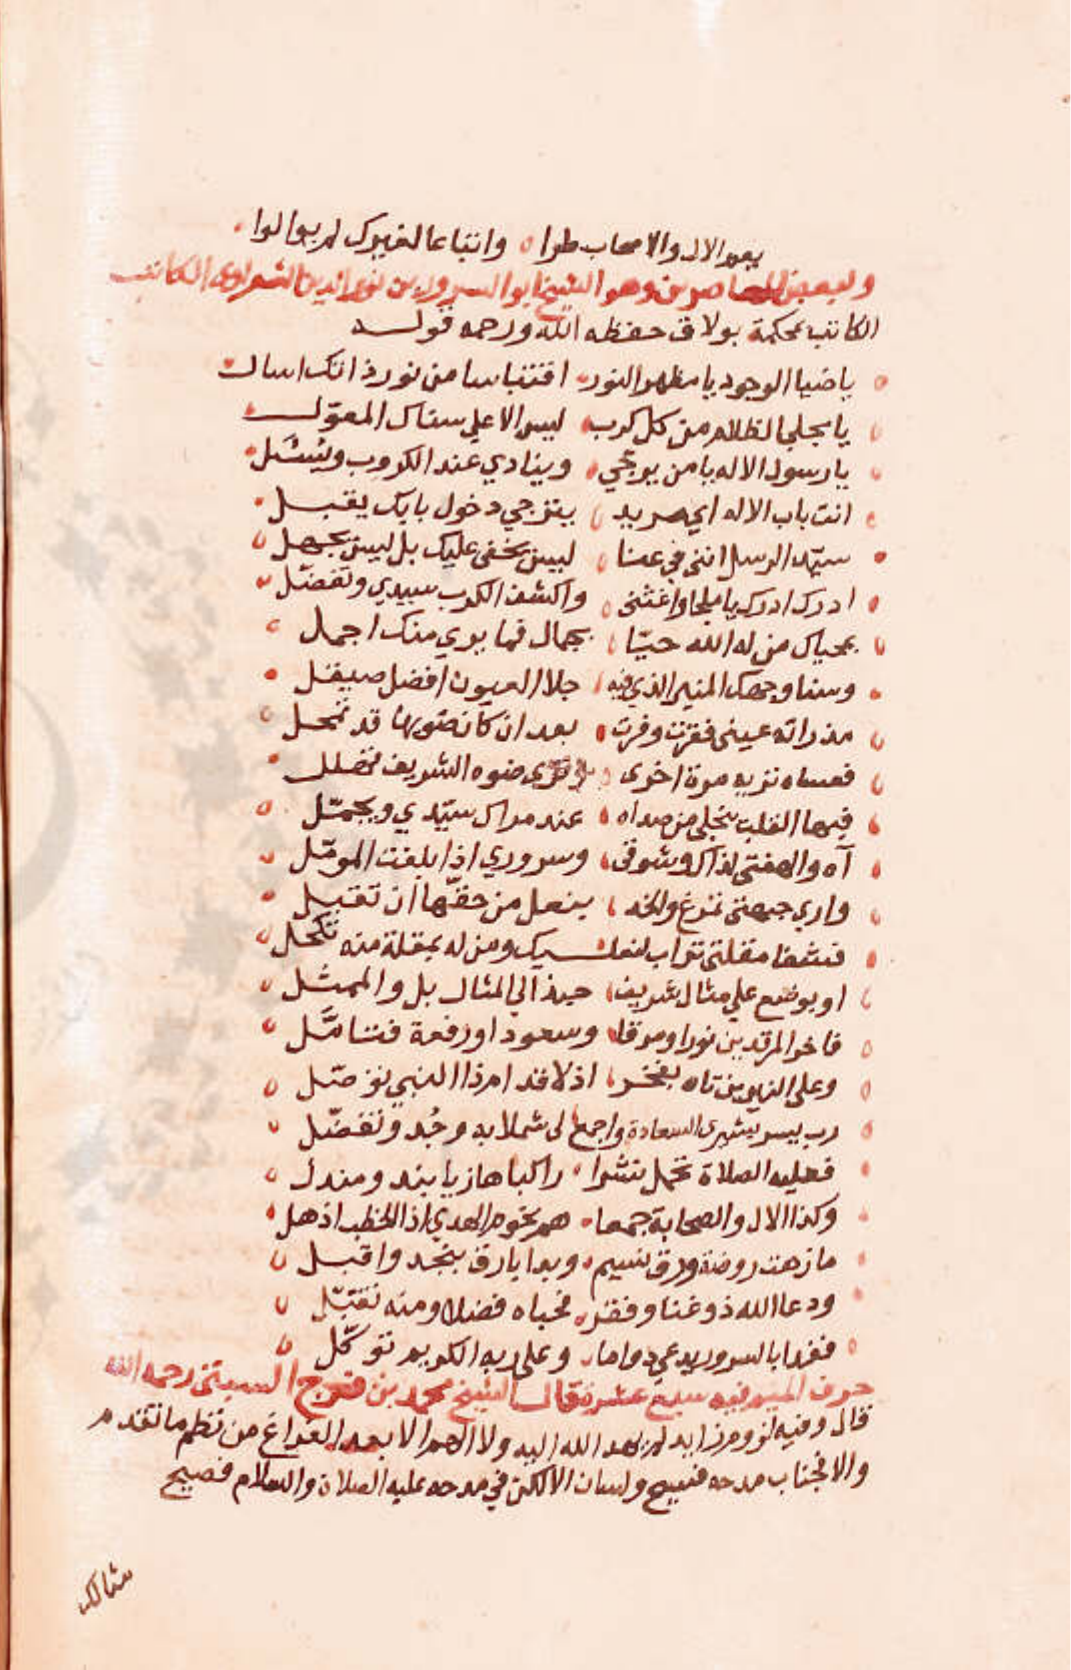 يعم الال والاصحاب طرا واتباعا لغيرك لم يوالوا
ولبعض المعاصرين وهو الشيخ ابو السرور بن نور الدين الشعراوى الكاتب
الكاتب بمحكمة بولاق حفظه الله ورحمه قوله
ياضيا الوجود يا مظهر النور اقتباسا من نور ذاتك اسال
يا مجلي الظلام من كل كرب ليس الا على سناك المعول
يا رسول الاله يا من يرجي وينادي عند الكروب ويسئل
انت باب الاله اي مريد يرتجي دخول بابك يقبل
سيد الرسل انني في عنا ليس يخفى عليك بل ليس يجهل
ادرك ادرك يا ملجا واغثنى واكشف الكرب سيدي وتفضل
بمحياك من له الله حيا بجمال فما يري منك اجمل
وسنا وجهك المنير الذي فيه جلا العيون افضل صيقل
مذ راته عينى فقرت وفرت بعد ان كان ضوءها قد تمحل
فعساه تريه مرة اخرى ترى ضوه الشريف
فبها القلب ينجلى من صداه عند مراك سيدي ويجمل
آه والهفتى لذاك وشوقى وسروري اذا بلغت المومل
واري جبهتى تمرغ والخد بنعل من حقها ان تقبل
فشفا مقلتى تراب لنعليك ومن له بمقلة منه تكحل
او بوضع علي مثال شريف حبذا لي المثال بل والممثل
فاخر الفرقدين نورا ومرقا وسعودا ورفعة فتامل
وعلى النيرين تاه بفخر اذ لاقدام ذا النبي توصل
رب يسر بشرى السعادة واجمع لى شملا به وجد وتفضل
فعليه الصلاة تحمل نشرا راكبا هازيا بند ومندل
وكذا الال والصحابة جمعا هم نجوم الهدي اذ الخطب اذهل
ما زهت روضة ورق نسيم وبدا بارق بنجد واقبل
ودعا الله ذو غنا وفقر فحباه فضلا ومنه تقبل
فغدا بالسرور يدعي دواما وعلى ربه الكريم توكل
حرف الميم فيه سبع عشرة قال الشيخ محمد بن فرج السبتى رحمه الله
قال وفيه لزوم زايد لم يعد الله اليه ولا الهم الا بعد الفراغ من نظم ما تقدم
والا فجناب مدحه فسيح ولسان الالكن في مدحه عليه الصلاة والسلام فصيح
مثالك